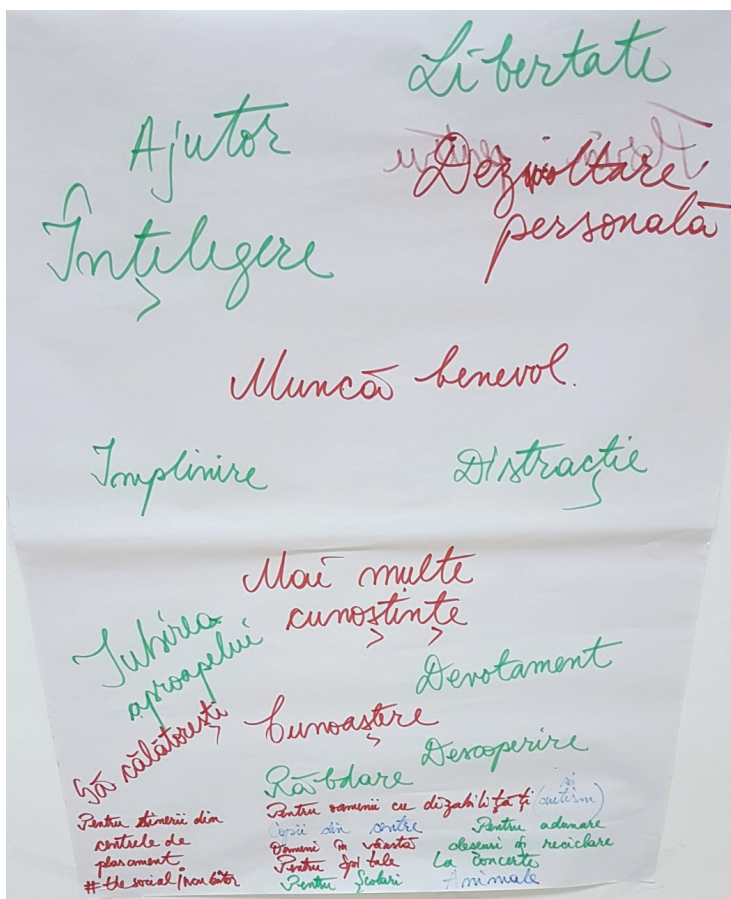 Libertate
Ajutor
Dezvoltare
personală
Înțelegere
Muncă benevol.
Implinire
Distracție
Mai multe
cunoștințe
Iubirea
aproapelui
Devotament
Să călătorești
Cunoaștere
Descoperire
Răbdare
Pentru tinerii din
centrele de
plasament
#the social incubator
Pentru oamenii cu dizabilități (și autism)
Copii din centre
Oameni în vârstă
Pentru Spitale
Pentru Școlari
Pentru adunare
deseuri și reciclare
La Concerte
Animale